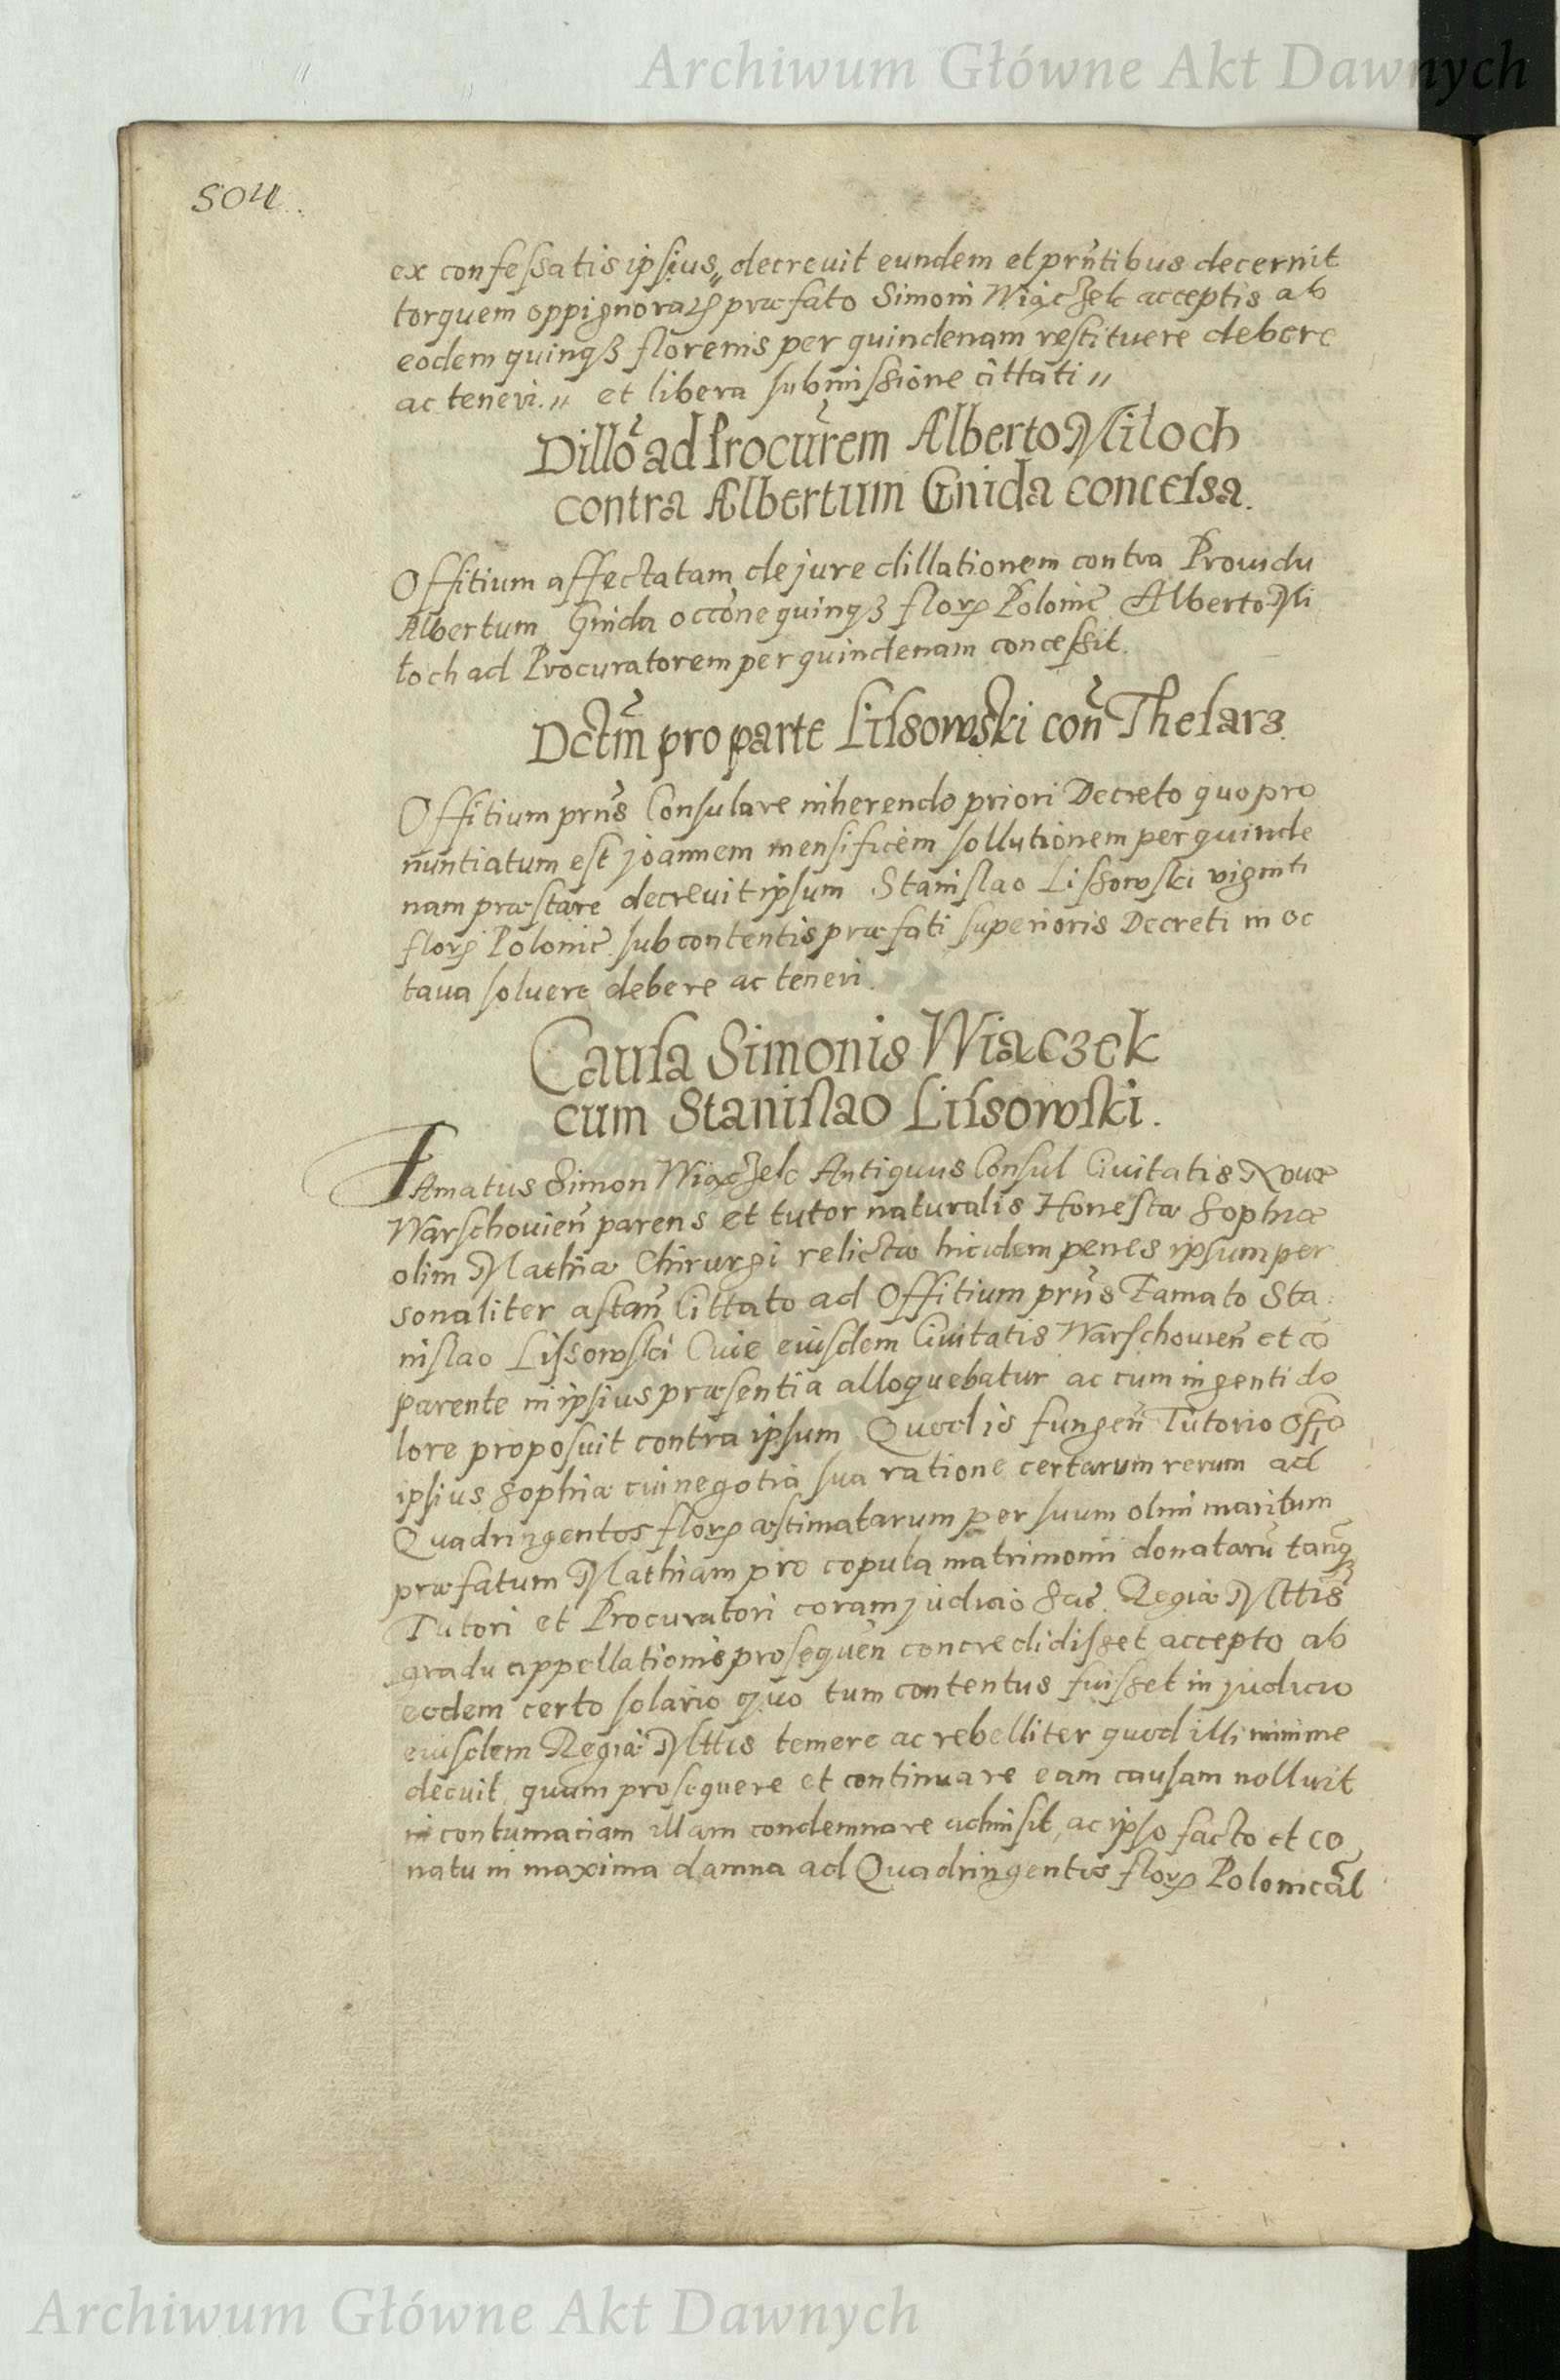 Archiwum Główne Akt Dawnych
504
ex confessatis ipsius,, decrevit eundem et prñtibus decernit
torquem oppignoratꝝ præfato Simoni Wiączek acceptis ab
eodem quinqꝫ florenis per quindenam restituere debere
ac teneri.,, et libera submissione cittati,,
Dillõ ad Procurẽm Alberto Miloch
contra Albertum Gnida concessa.
Offitium affectatam de jure dillationem contra Providu
Albertum Gnida occõne quinqꝫ florꝝ Polonic̃ Alberto Mi
loch ad Procuratorem per quindenam concessit.
Dctm̃ pro parte Lissowski con̄ Thesarz.
Offitium prñs Consulare inherendo priori Decreto quo pro
nuntiatum est joannem mensificem sollutionem per quinde
nam præstare decrevit ipsum Stanislao Lissowski viginti
florꝝ Polonic̃ sub contentis præfati superioris Decreti in oc
tava soluere debere ac teneri.
Causa Simonis Wiączek
cum Stanislao Lissowski.
FAmatus Simon Wiączek Antiquus Consul Civitatis Novæ
Warschovien̄ parens et tutor naturalis Honestæ Sophiæ
olim Mathiæ Chirurgi relictæ hicidem penes ipsum per
sonaliter astan̄ Cittato ad Offitium prñs Famato Sta
nislao Lissowski Cive eiusdem Civitatis Warschovien̄ et cõ
parente in ipsius præsentia alloquebatur ac cum ingenti do
lore proposuit contra ipsum Quod is fungen̄ Tutorio Offõ
ipsius Sophiæ cui negotia sua ratione certarum rerum ad
Quadringentos florꝝ æstimatarum per suum olim maritum
præfatum Mathiam pro copula matrimonii donatarũ tanq̃
Tutori et Procuratori coram judicio Sac̃. Regiæ Mttis
gradu appellationis prosequen̄ concredidisset accepto ab
eodem certo solario quo tum contentus fuisset in judicio
eiusdem Regiæ Mttis temere ac rebelliter quod illi minime
decuit, quum prosequere et continuare eam causam nolluit
in contumaciam illam condemnare admisit, ac ipso facto et co
natu in maxima damna ad Quadringentos florꝝ Polonical̃
Archiwum Główne Akt Dawnych